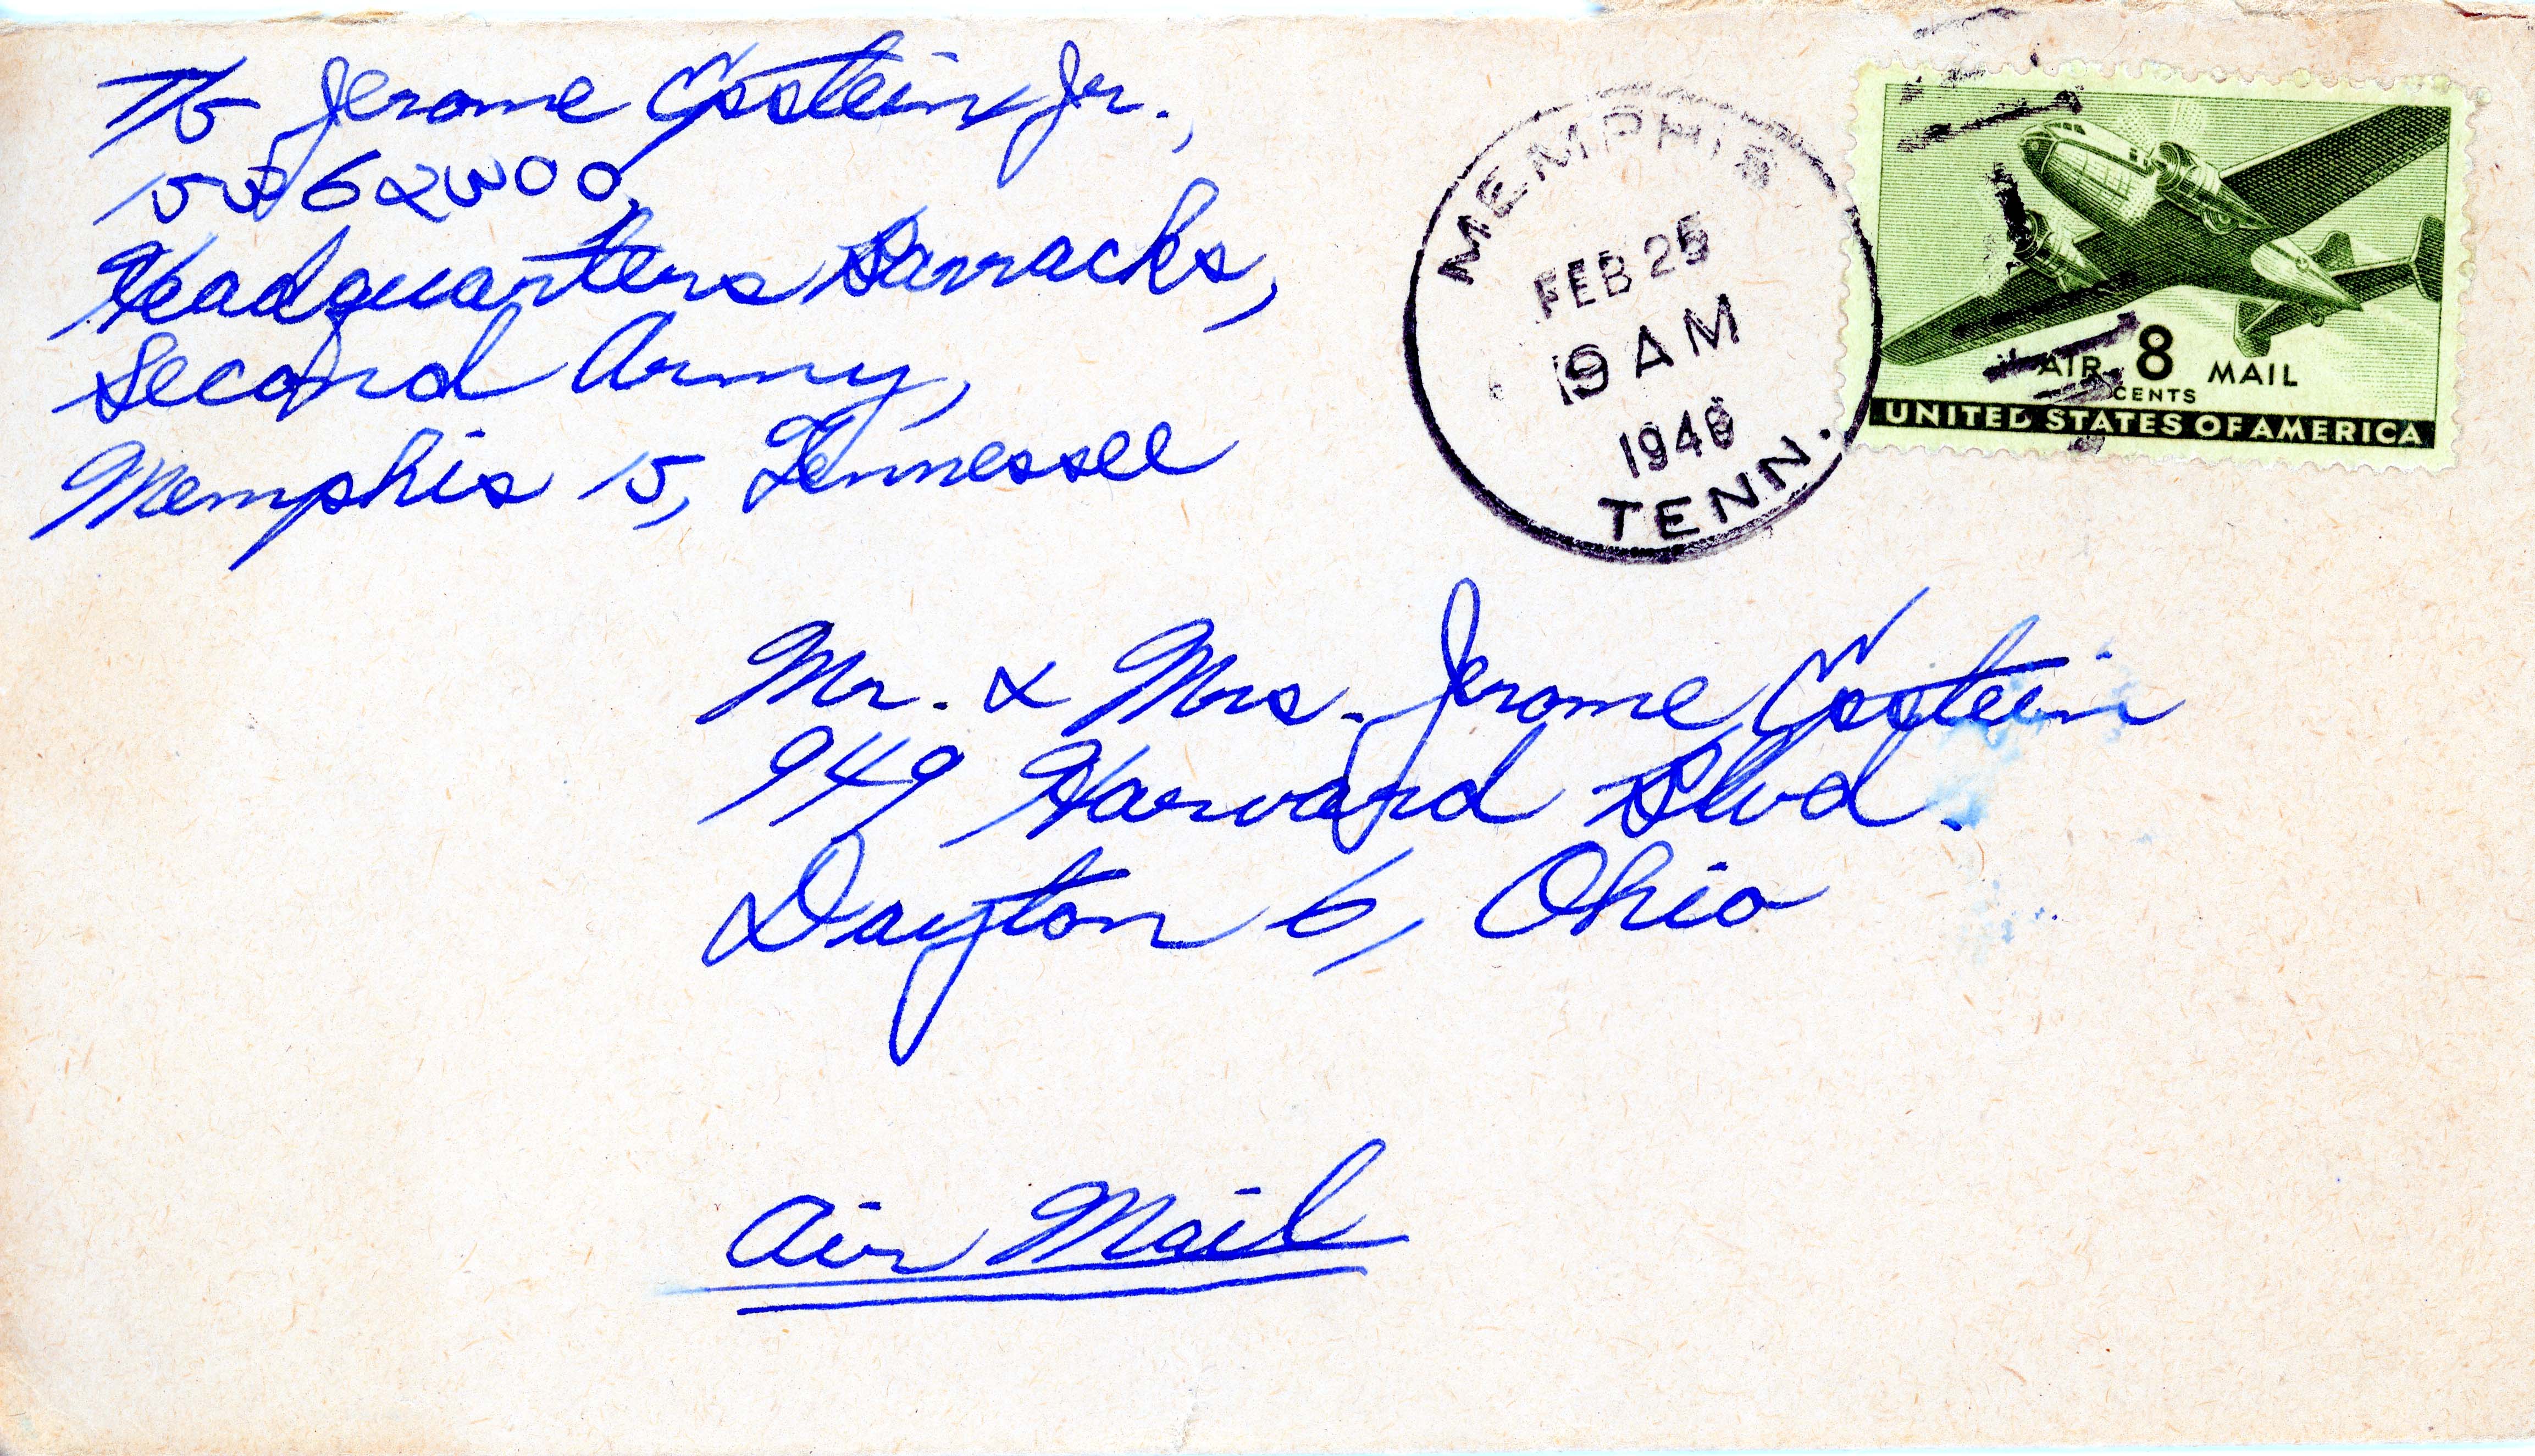 T/5 Jerome Epstein Jr.,
15562300,
Headquarters Barracks,
Second Army,
Memphis 15, Tennessee
MEMPHIS
FEB 25
9 AM
1946
TENN.
AIR 8 MAIL
CENTS
UNITED STATES OF AMERICA
Mr. & Mrs. Jerome Epstein
949 Harvard Blvd.
Dayton 6, Ohio
Air Mail